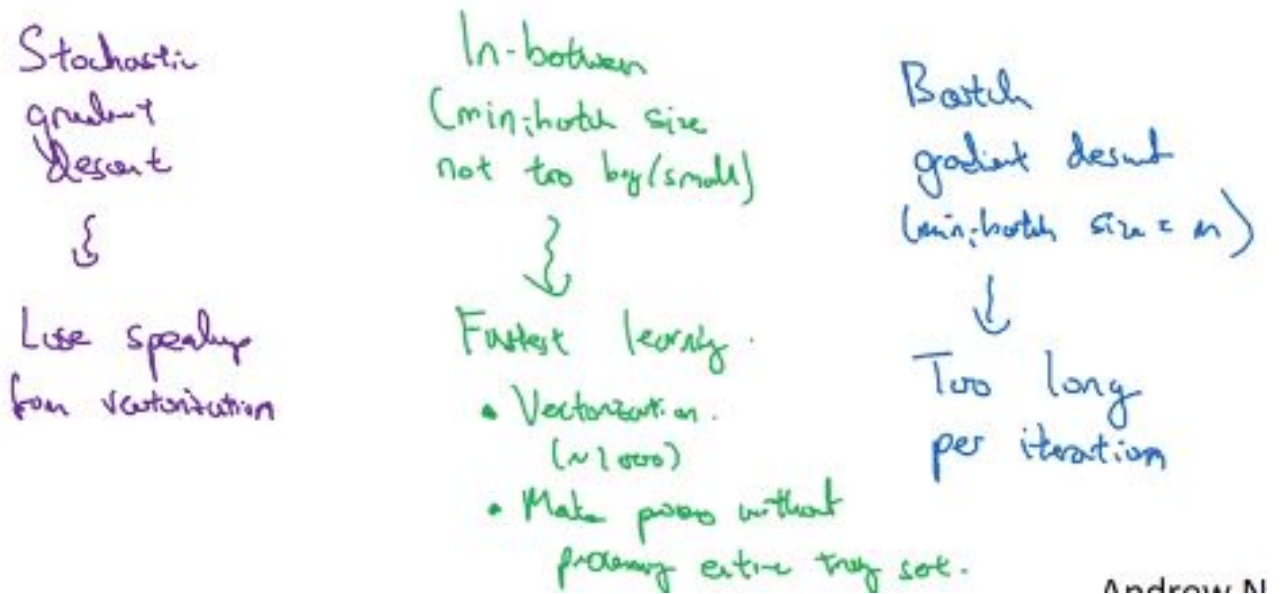 Stochastic
gradient
descent
Lose speedup
from vectorization
In-between
(mini-batch size
not too big/small)
Fastest learning.
• Vectorization.
(~1000)
• Make progress without
processing entire training set.
Batch
gradient descent
(mini-batch size = m)
Too long
per iteration
Andrew N